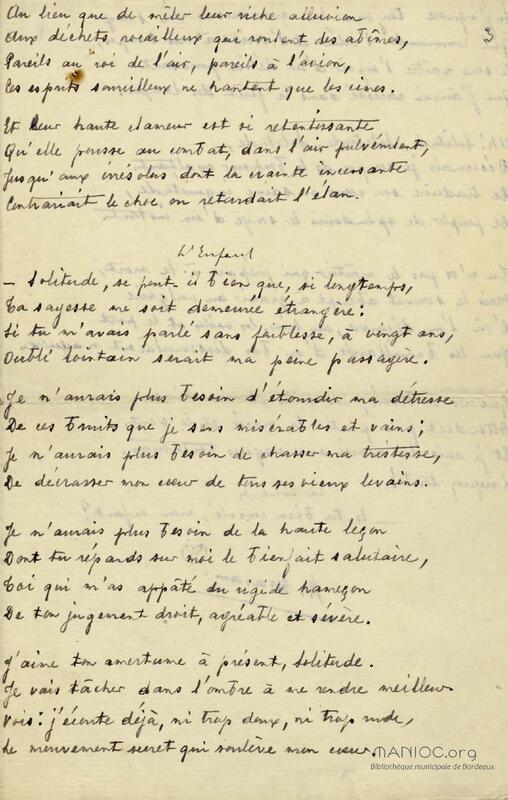 3
Au lieu que de mêler leur riche alluvion
Aux déchets rocailleux qui rôdent des abîmes,
Pareils au roi de l'air, pareils à l'avion,
Ces esprits sourcilleux ne hantent que les cimes.
Et leur haute clameur est si retentissante
Qu'elle pousse au combat, dans l'air pulvérulent,
Jusqu'aux irrésolus dont la crainte incessante
Contrariait le choc ou retardait l'élan.
L'Enfant
— Solitude, se peut-il bien que, si longtemps,
Ta sagesse me soit demeurée étrangère:
Si tu m'avais parlé sans faiblesse, à vingt ans,
Oubli lointain serait ma peine passagère.
Je n'aurais plus besoin d'étourdir ma détresse
De ces bruits que je sens misérables et vains;
Je n'aurais plus besoin de chasser ma tristesse,
De décrasser mon cœur de tous ses vieux levains.
Je n'aurais plus besoin de la haute leçon
Dont tu répands sur moi le bienfait salutaire,
Toi qui m'as appâté du rigide hameçon
De ton jugement droit, agréable et sévère.
J'aime ton amertume à présent, Solitude.
Je vais tâcher dans l'ombre à me rendre meilleur
Vois: j'écoute déjà, ni trop doux, ni trop rude,
Le mouvement secret qui soulève mon cœur.
MANIOC.org
Bibliothèque municipale de Bordeaux